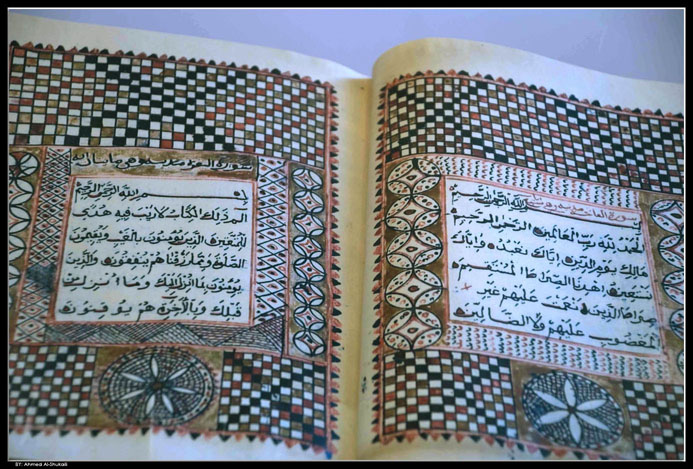 سورة الفاتحة
بسم الله الرحمن الرحيم
الحمد لله رب العالمين الرحمن الرحيم
مالك يوم الدين إياك نعبد وإياك
نستعين اهدنا الصراط المستقيم
صراط الذين أنعمت عليهم غير
المغضوب عليهم ولا الضالين
بسم الله الرحمن الرحيم
الم ذلك الكتاب لا ريب فيه هدى
للمتقين الذين يؤمنون بالغيب ويقيمون
الصلوة ومما رزقناهم ينفقون والذين
يؤمنون بما أنزل إليك وما أنزل من
قبلك وبالآخرة هم يوقنون
BY: Ahmed Al-Shukaili